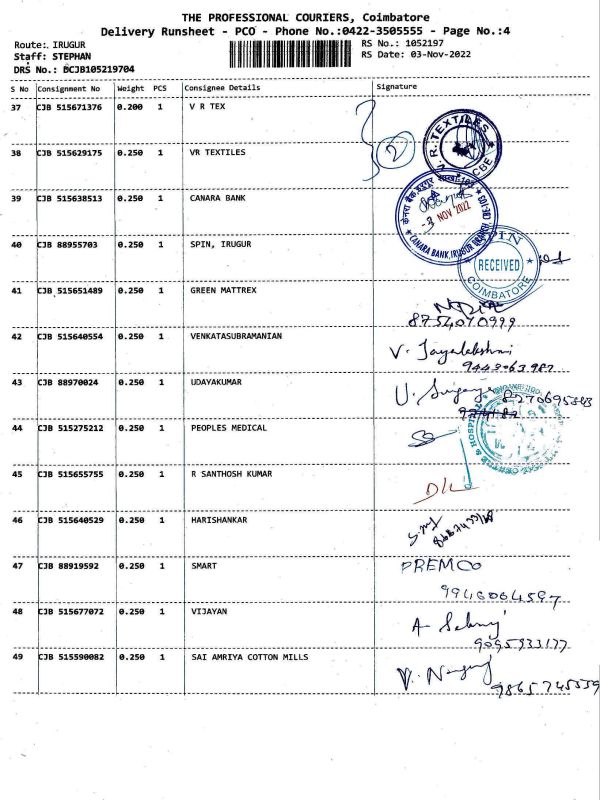 THE PROFESSIONAL COURIERS, Coimbatore
Delivery Runsheet - PCO - Phone No.:0422-3505555 - Page No.:4
Route:. IRUGUR
RS No.: 1052197
Staff: STEPHAN
RS Date: 03-Nov-2022
DRS No.: BCJB105219704
S No Consignment No Weight PCS Consignee Details Signature
37 CJB 515671376 0.200 1 V R TEX
38 CJB 515629175 0.250 1 VR TEXTILES
2
V. R. TEXTILES CBE
39 CJB 515638513 0.250 1 CANARA BANK
-3 NOV 2022
CANARA BANK, IRUGUR BRANCH
40 CJB 88955703 0.250 1 SPIN, IRUGUR
RECEIVED
COIMBATORE
41 CJB 515651489 0.250 1 GREEN MATTREX
8754070999
42 CJB 515640554 0.250 1 VENKATASUBRAMANIAN
V. Jayalakshmi
43 CJB 88970024 0.250 1 UDAYAKUMAR
44 CJB 515275212 0.250 1 PEOPLES MEDICAL
45 CJB 515655755 0.250 1 R SANTHOSH KUMAR
46 CJB 515640529 0.250 1 HARISHANKAR
47 CJB 88919592 0.250 1 SMART
PREMCO
48 CJB 515677072 0.250 1 VIJAYAN
9095933177
49 CJB 515590082 0.250 1 SAI AMRIYA COTTON MILLS
9865745559